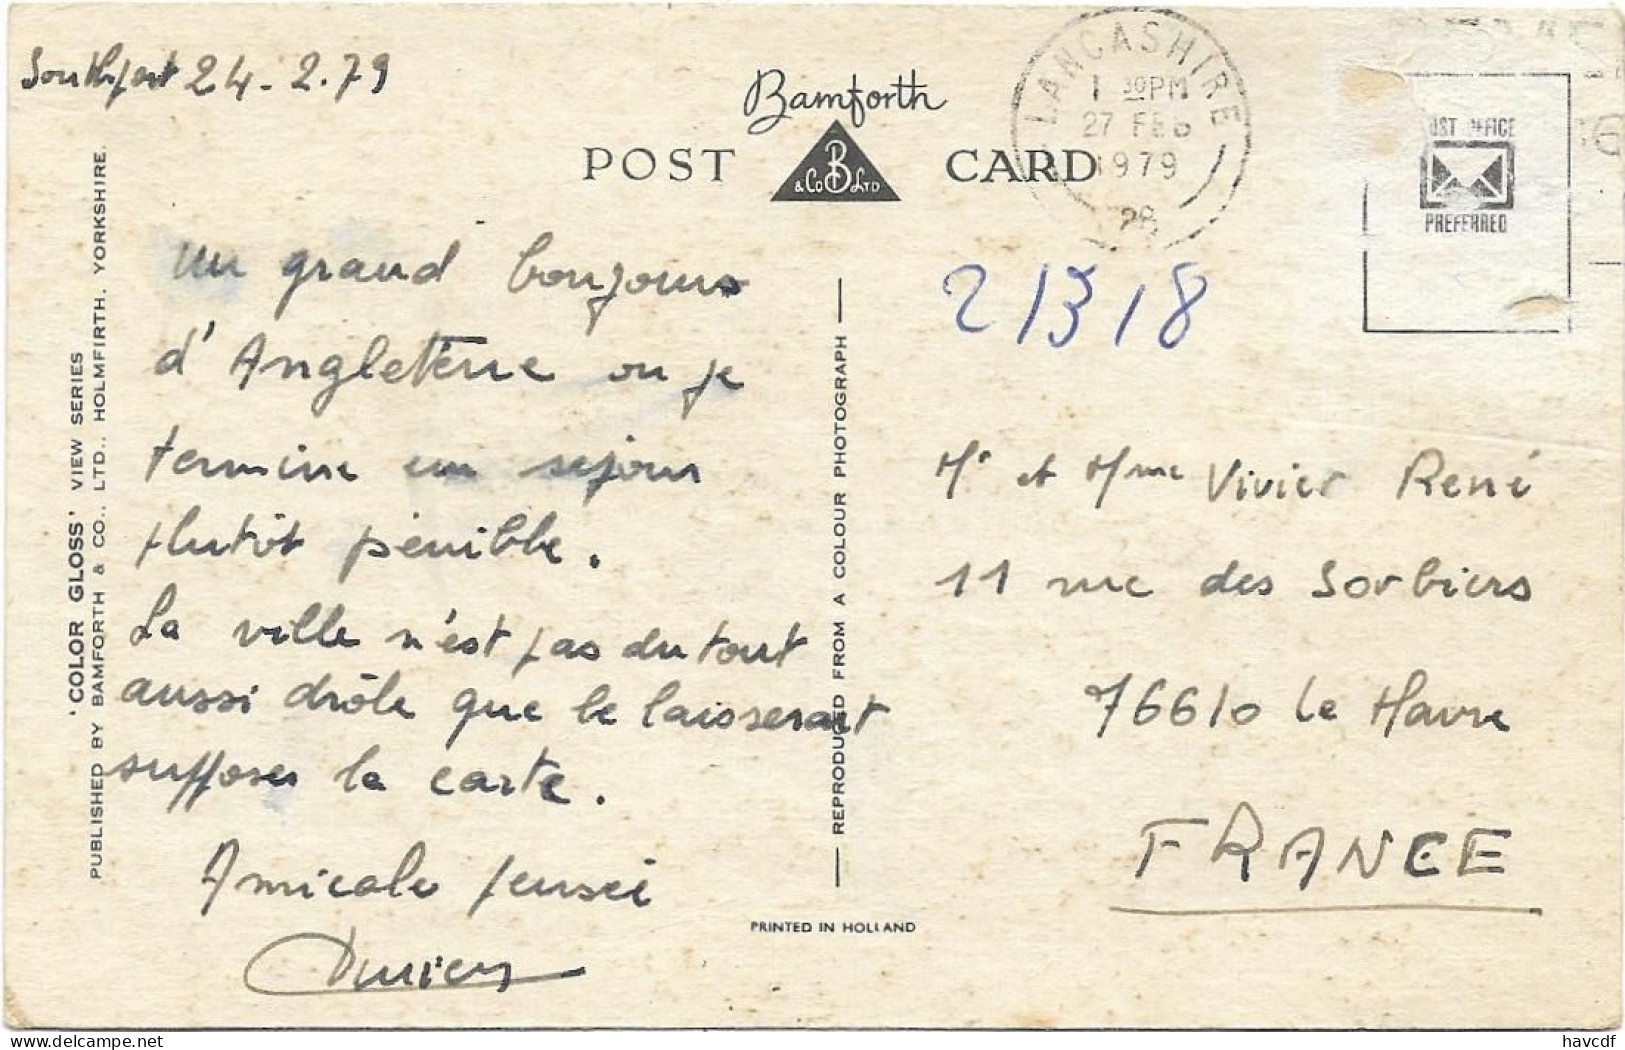 Southport 24-2.79
Bamforth
POST CARD
& Co B LTD
LANCASHIRE
1 30PM
27 FEB
1979
28
POST OFFICE
PREFERRED
21318
un grand bonjour
d'Angleterre ou je
termine un séjour
plutôt pénible.
La ville n'est pas du tout
aussi drôle que le laisserait
supposer la carte.
Amicale pensée
Mr et Mme Vivier René
11 rue des Sorbiers
76610 Le Havre
FRANCE
'COLOR GLOSS' VIEW SERIES
PUBLISHED BY BAMFORTH & CO., LTD., HOLMFIRTH, YORKSHIRE.
REPRODUCED FROM A COLOUR PHOTOGRAPH
PRINTED IN HOLLAND
delcampe.net
havcdf